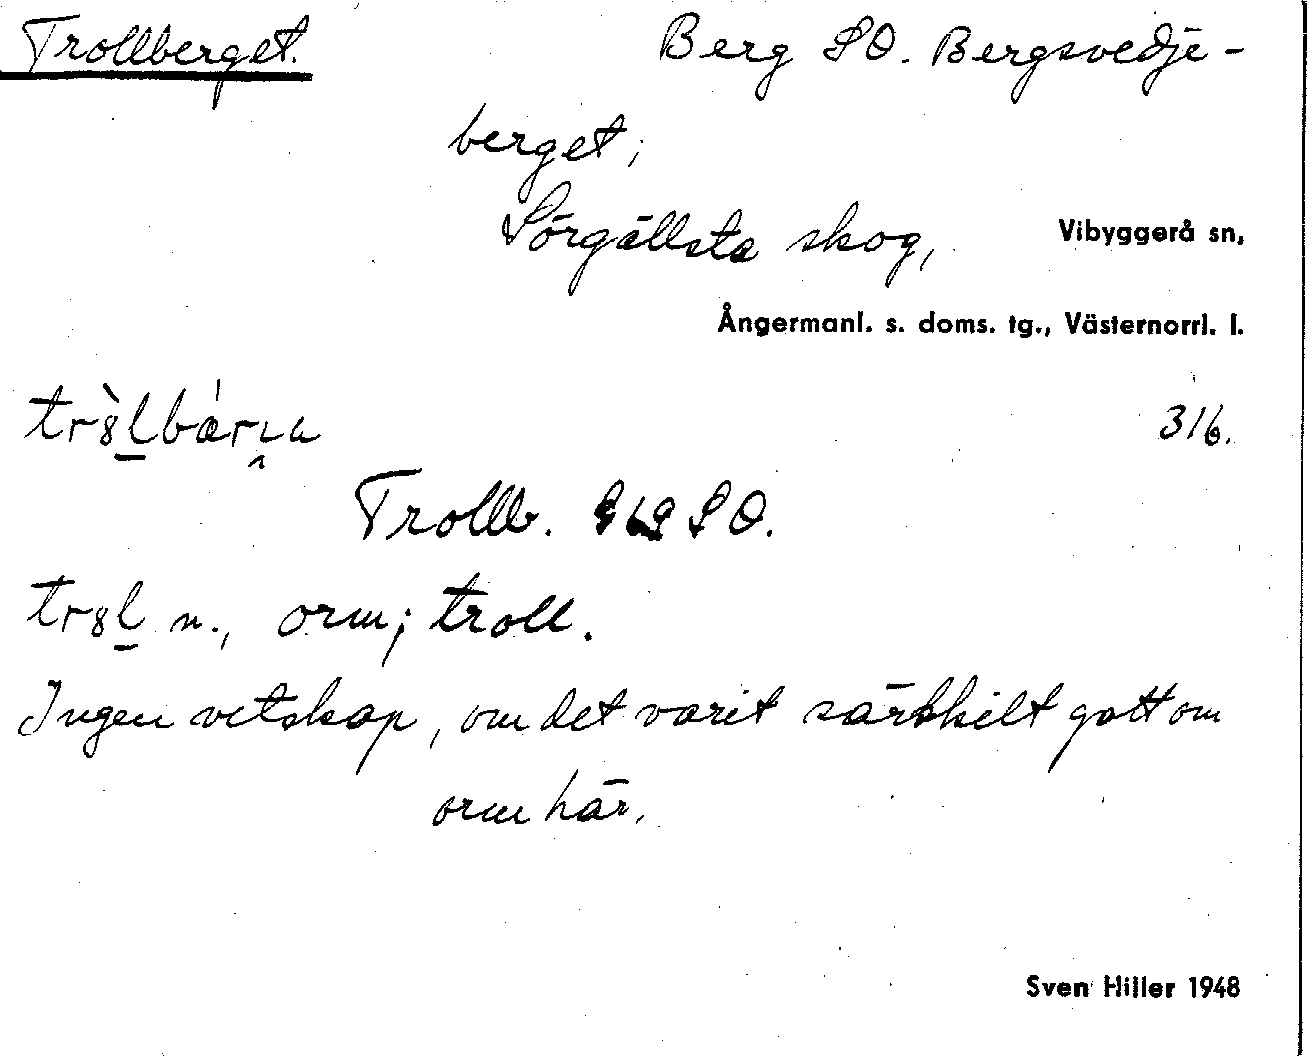 Trollberget. Berg SO. Bergsvedje-
berget;
Sörgällsta skog, Vibyggerå sn,
Ångermanl. s. doms. tg., Västernorrl. l.
316.
Trollb. SO.
n., orm; troll.
Ingen vetskap, om det varit särskilt gott om
orm här.
Sven Hiller 1948